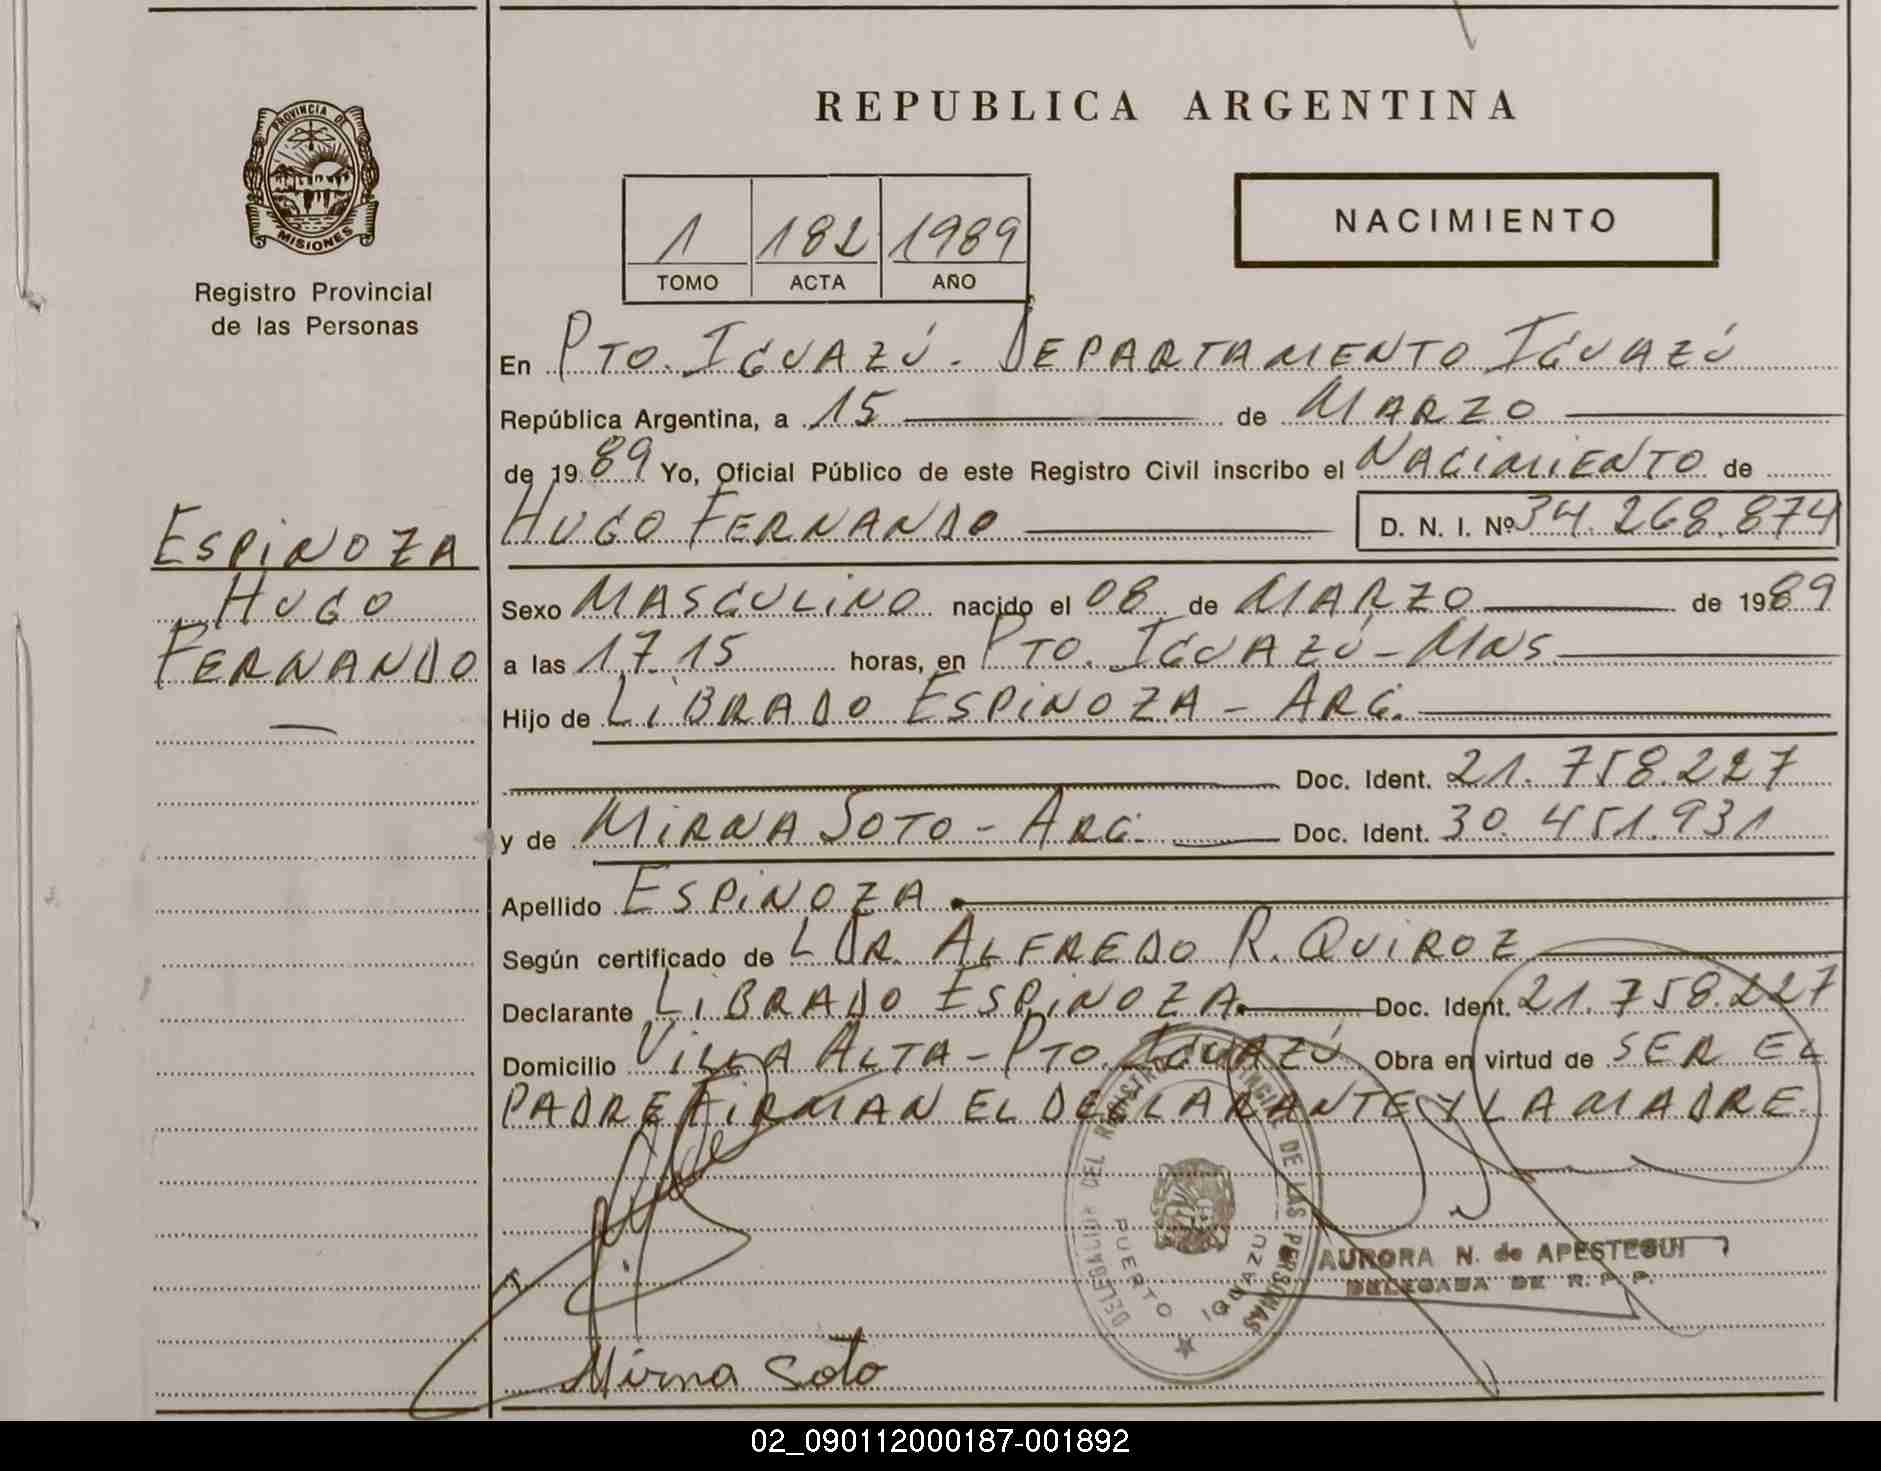 REPUBLICA ARGENTINA
PROVINCIA DE MISIONES
Registro Provincial
de las Personas
1 182 1989
TOMO ACTA AÑO
NACIMIENTO
En PTO. IGUAZÚ - DEPARTAMENTO IGUAZÚ
República Argentina, a 15 de MARZO
de 1989 Yo, Oficial Público de este Registro Civil inscribo el NACIMIENTO de
HUGO FERNANDO D. N. I. Nº 34.268.874
ESPINOZA
HUGO
FERNANDO
Sexo MASCULINO nacido el 08 de MARZO de 1989
a las 17.15 horas, en PTO. IGUAZÚ - MNS
Hijo de LIBRADO ESPINOZA - ARG.
Doc. Ident. 21.758.227
y de MIRNA SOTO - ARG. Doc. Ident. 30.451.931
Apellido ESPINOZA
Según certificado de L DR. ALFREDO R. QUIROZ
Declarante LIBRADO ESPINOZA Doc. Ident. 21.758.227
Domicilio VILLA ALTA - PTO. IGUAZÚ Obra en virtud de SER EL
PADRE FIRMAN EL DECLARANTE Y LA MADRE.
DEL REGISTRO DE LAS PERSONAS
PUERTO IGUAZU
AURORA N. de APESTEGUI
DELEGADA DE R. P. P.
Mirna Soto
02_090112000187-001892